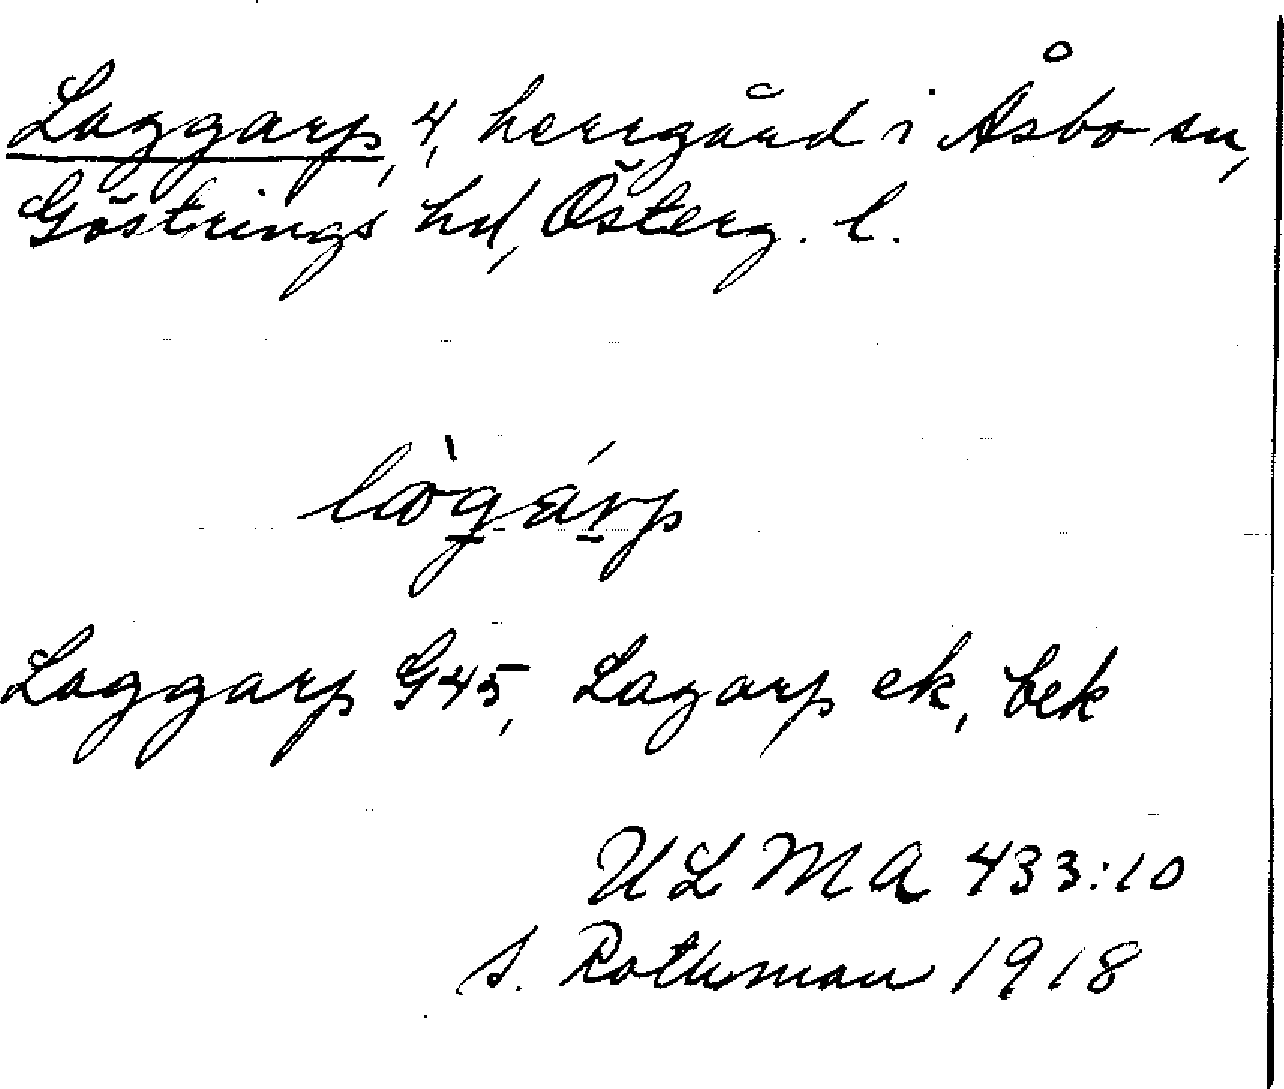 Laggarp, 4, herrgård i Åsbo sn,
Göstrings hd, Österg. l.
Laggarp G45, Lagarp ek, bek
ULMA 433:10
S. Rothman 1918